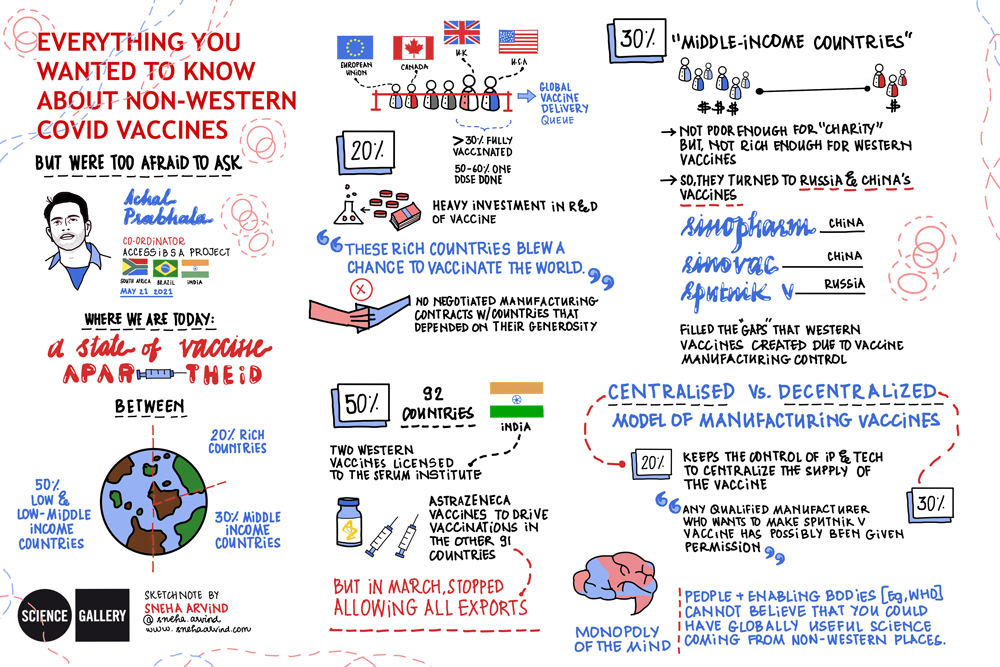 EVERYTHING YOU
WANTED TO KNOW
ABOUT NON-WESTERN
COVID VACCINES
BUT WERE TOO AFRAID TO ASK
Achal
Prabhala
CO-ORDINATOR
ACCESSIBSA PROJECT
SOUTH AFRICA
BRAZIL
INDIA
MAY 21 2021
WHERE WE ARE TODAY:
a state of vaccine
APARTHEID
BETWEEN
20% RICH
COUNTRIES
50%
LOW &
LOW-MIDDLE
INCOME
COUNTRIES
30% MIDDLE
INCOME
COUNTRIES
SCIENCE
GALLERY
SKETCHNOTE BY
SNEHA ARVIND
@ sneha.arvind
www.snehaarvind.com
EUROPEAN
UNION
CANADA
U.K
U.S.A
GLOBAL
VACCINE
DELIVERY
QUEUE
20%
>30% FULLY
VACCINATED
50-60% ONE
DOSE DONE
HEAVY INVESTMENT IN R&D
OF VACCINE
“THESE RICH COUNTRIES BLEW A
CHANCE TO VACCINATE THE WORLD.”
X
NO NEGOTIATED MANUFACTURING
CONTRACTS W/COUNTRIES THAT
DEPENDED ON THEIR GENEROSITY
50%
92
COUNTRIES
INDIA
TWO WESTERN
VACCINES LICENSED
TO THE SERUM INSTITUTE
ASTRAZENECA
VACCINES TO DRIVE
VACCINATIONS IN
THE OTHER 91
COUNTRIES
BUT IN MARCH, STOPPED
ALLOWING ALL EXPORTS
30%
"MIDDLE-INCOME COUNTRIES"
$$$
$
→ NOT POOR ENOUGH FOR "CHARITY"
BUT, NOT RICH ENOUGH FOR WESTERN
VACCINES
→ SO, THEY TURNED TO RUSSIA & CHINA'S
VACCINES
sinopharm CHINA
sinovac CHINA
sputnik V RUSSIA
FILLED THE "GAPS" THAT WESTERN
VACCINES CREATED DUE TO VACCINE
MANUFACTURING CONTROL
CENTRALISED VS. DECENTRALIZED
MODEL OF MANUFACTURING VACCINES
20%
KEEPS THE CONTROL OF IP & TECH
TO CENTRALIZE THE SUPPLY OF
THE VACCINE
30%
“ANY QUALIFIED MANUFACTURER
WHO WANTS TO MAKE SPUTNIK V
VACCINE HAS POSSIBLY BEEN GIVEN
PERMISSION”
MONOPOLY
OF THE MIND
PEOPLE + ENABLING BODIES [Eg, WHO]
CANNOT BELIEVE THAT YOU COULD
HAVE GLOBALLY USEFUL SCIENCE
COMING FROM NON-WESTERN PLACES.